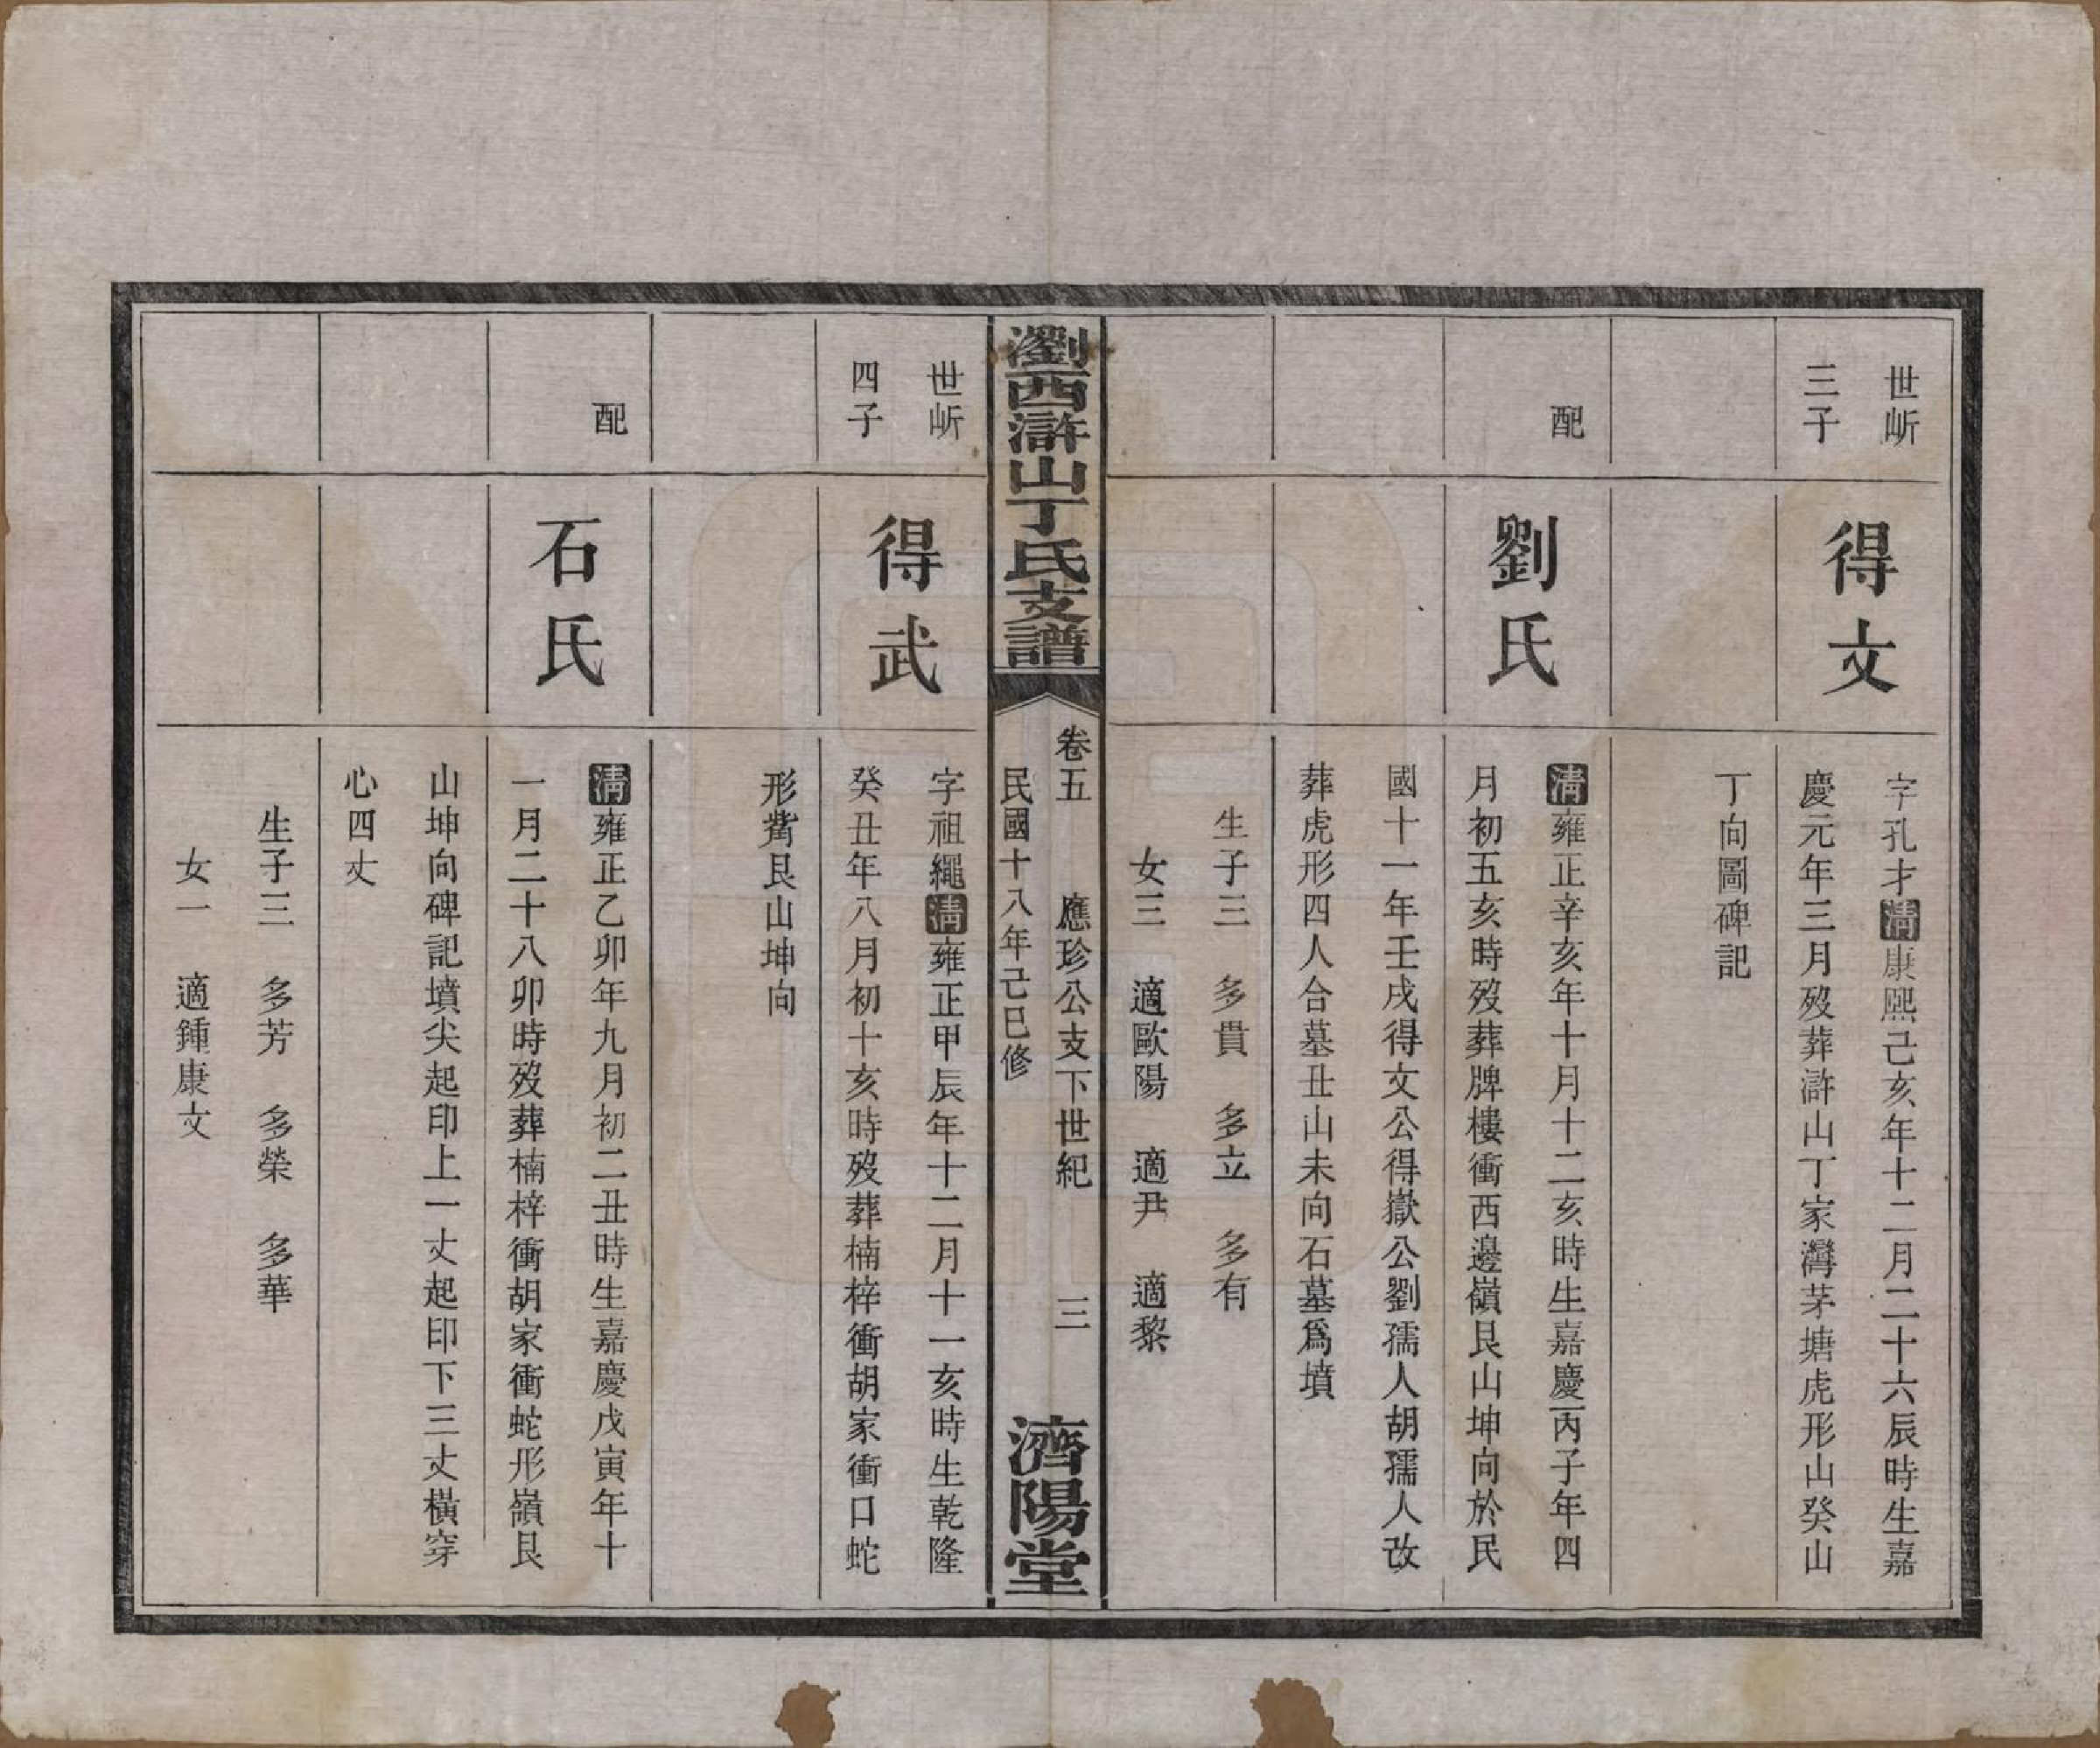 世岓
三子
得文
字孔才清康熙己亥年十二月二十六辰時生嘉
慶元年三月歿葬滸山丁家灣茅塘虎形山癸山
丁向圖碑記
配
劉氏
清雍正辛亥年十月十二亥時生嘉慶丙子年四
月初五亥時歿葬牌樓衝西邊嶺艮山坤向於民
國十一年壬戌得文公得嶽公劉孺人胡孺人改
葬虎形四人合墓丑山未向石墓爲墳
生子三　多貴　多立　多有
女三　適歐陽　適尹　適黎
瀏西滸山丁氏支譜
卷五　應珍公支下世紀　三
民國十八年己巳修
濟陽堂
世岓
四子
得武
字祖繩清雍正甲辰年十二月十一亥時生乾隆
癸丑年八月初十亥時歿葬楠梓衝胡家衝口蛇
形觜艮山坤向
配
石氏
清雍正乙卯年九月初二丑時生嘉慶戊寅年十
一月二十八卯時歿葬楠梓衝胡家衝蛇形嶺艮
山坤向碑記墳尖起印上一丈起印下三丈橫穿
心四丈
生子三　多芳　多榮　多華
女一　適鍾康文